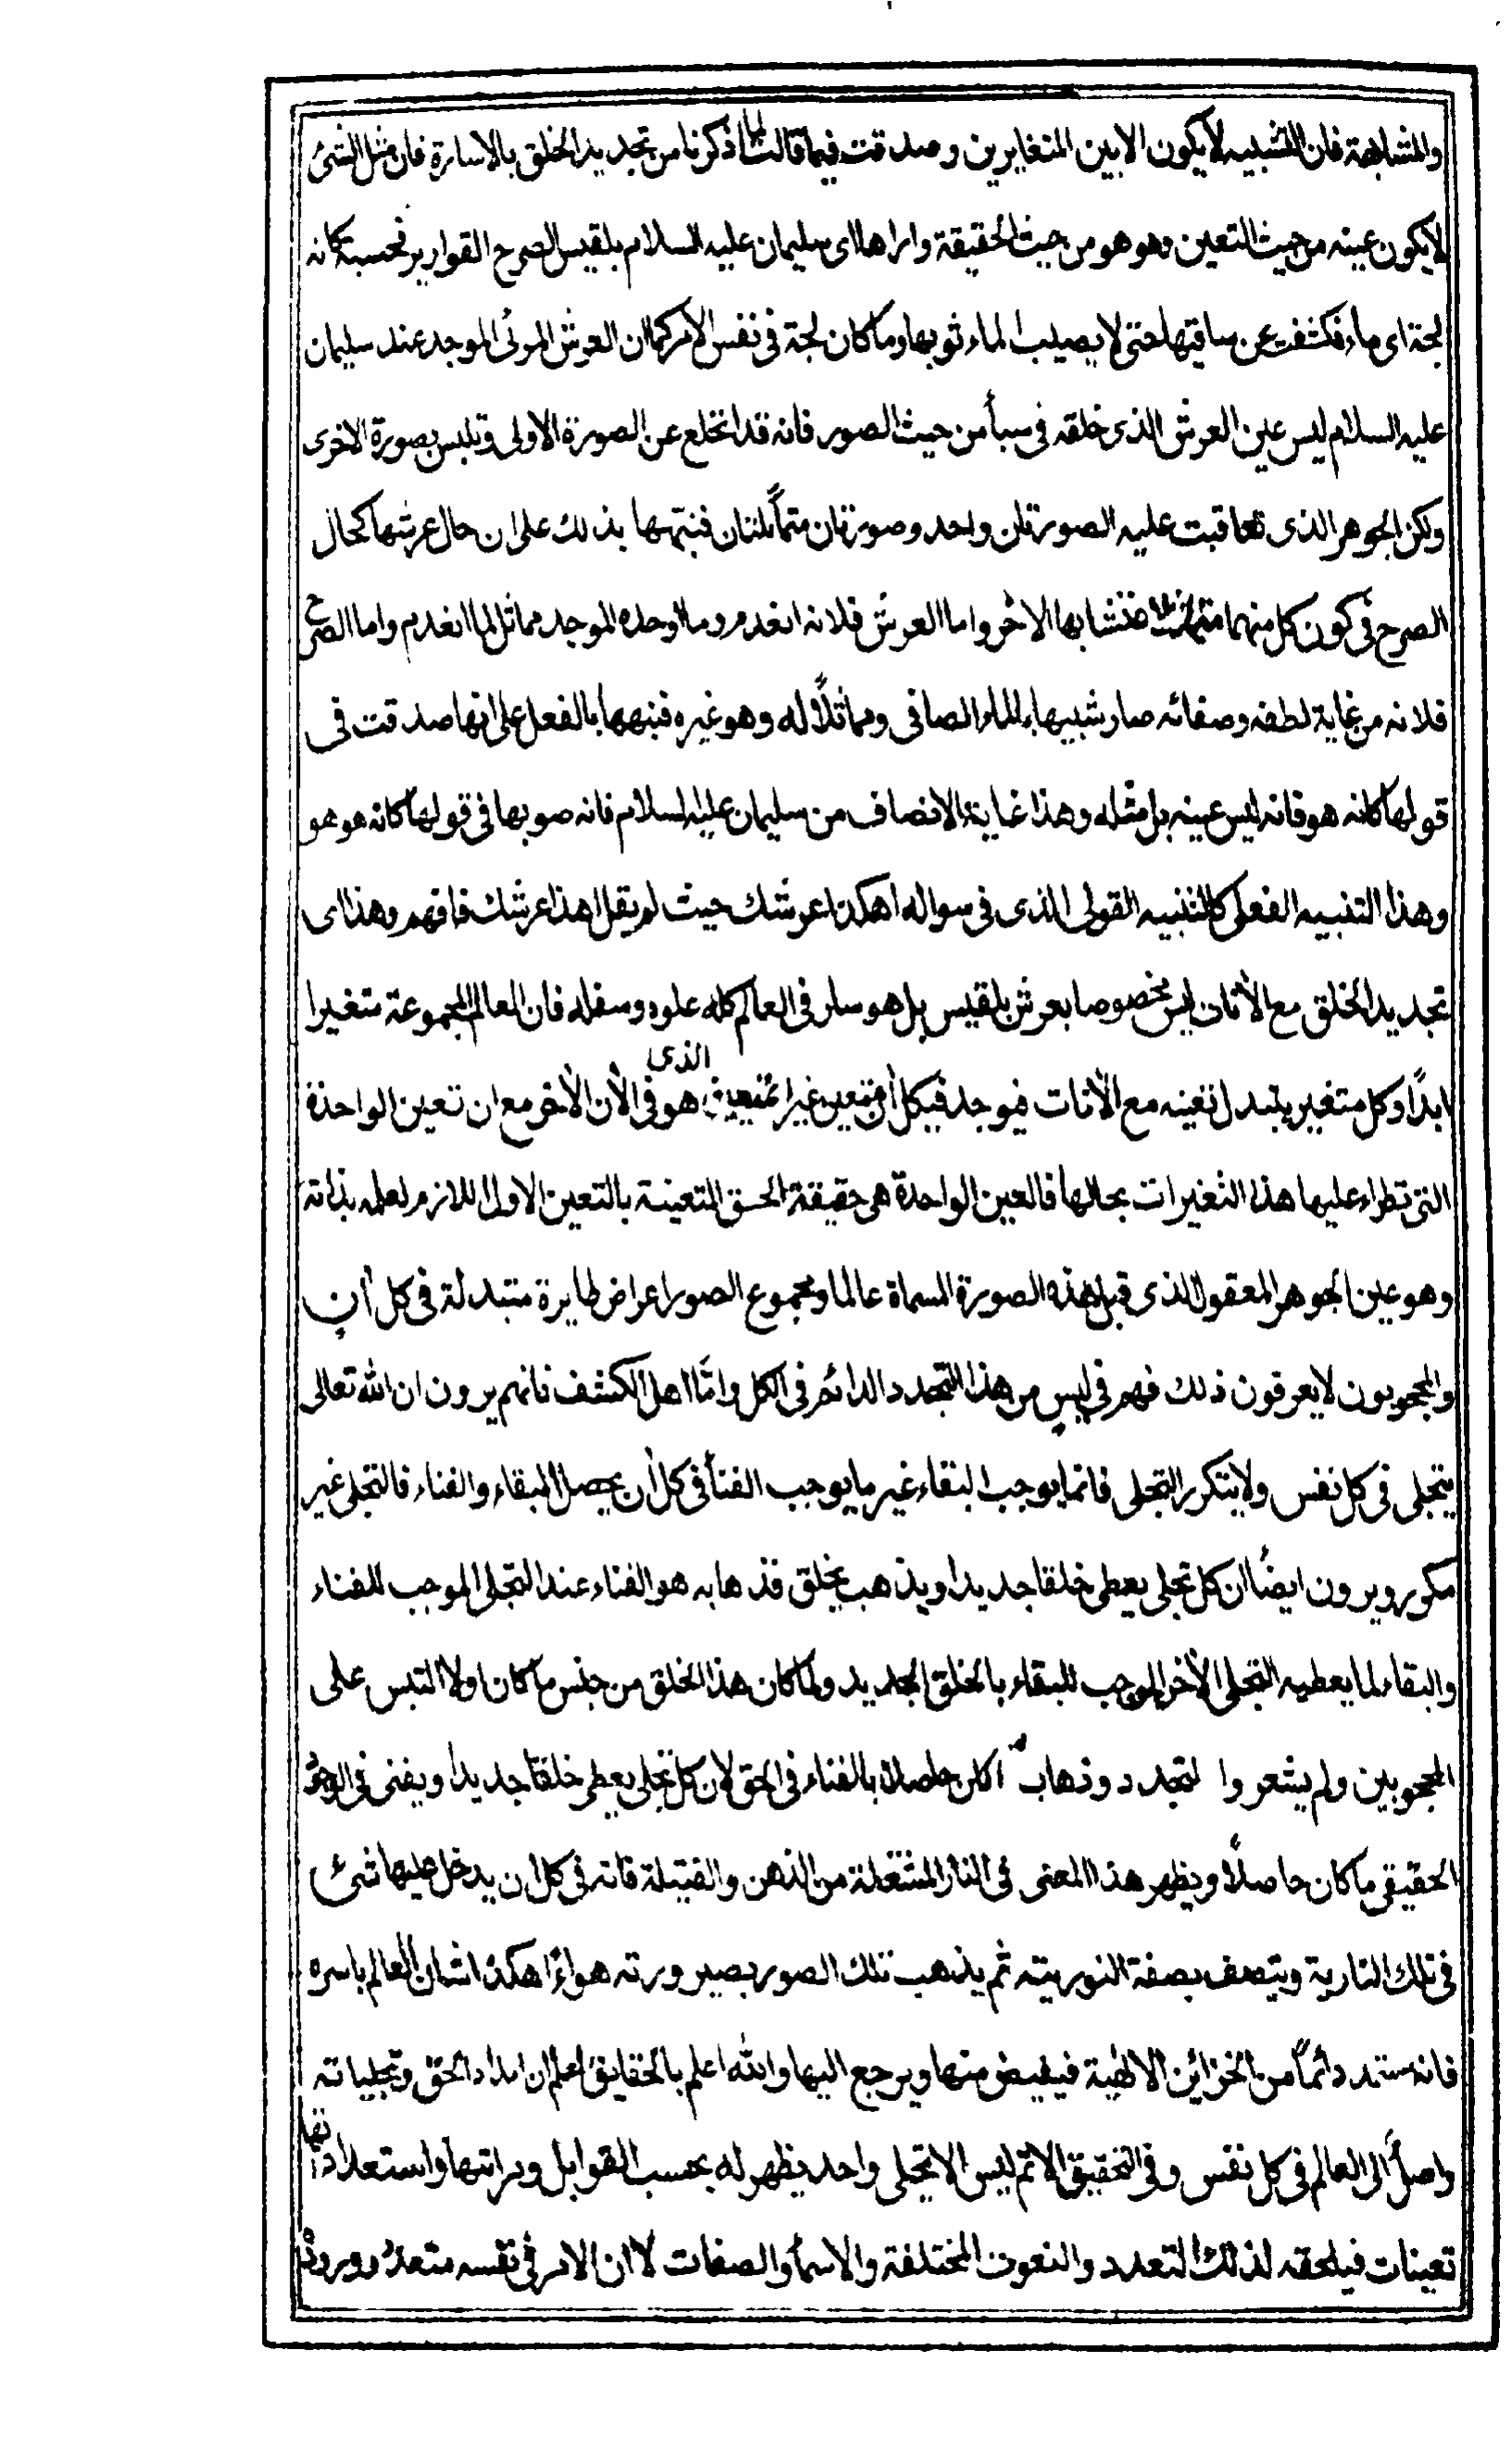 والمشابهة فان التشبيه لا يكون الا بين المتغايرين وصدقت فيما قالت لما ذكرنا من تجديد الخلق بالاسارة فان مثل الشئ
لا يكون عينه من حيث التعين وهو هو من حيث الحقيقة واراها اى سليمان عليه السلام بلقيس الصرح القوارير فحسبته كانه
لجة اى ماء فكشفت عن ساقيها حتى لا يصيب الماء ثوبها وما كان لجة فى نفس الامر كما ان العرش المرئى الموجد عند سليمان
عليه السلام ليس عين العرش الذى خلقه فى سبأ من حيث الصور فانه قد انخلع عن الصورة الاولى وتلبس بصورة الاخرى
ولكن الجوهر الذى تعاقبت عليه الصورتان واحد وصورتان متماثلتان فنبهها بذلك على ان حال عرشها كحال
الصرح فى كون كل منهما مشابها الاخر واما العرش فلانه انعدم وما اوجده الموجد مماثل لما انعدم واما الصرح
فلانه من غاية لطفه وصفائه صار شبيها بالماء الصافى ومماثلاً له وهو غيره فنبهها بالفعل على انها صدقت فى
قولها كانه هو فانه ليس عينه بل مثله وهذا غاية الانصاف من سليمان عليه السلام فانه صوبها فى قولها كانه هو هو
وهذا التنبيه الفعلى كالتنبيه القولى الذى فى سواله اهكذا عرشك حيث لم يقل اهذا عرشك فافهم وهذا اى
تجديد الخلق مع الأنات ليس مخصوصا بعرش بلقيس بل هو سار فى العالم كله علوه وسفله فان العالم المجموعة متغيرا
ابداً وكل متغير يتبدل تعينه مع الأنات فيوجد فى كل أن متعين غير المتعين الذى هو فى الأن الأخر مع ان تعين الواحدة
التى تطراء عليها هذا التغيرات بحالها فالعين الواحدة هى حقيقة الحق المتعينة بالتعين الاول اللازم لعلمه بذاته
وهو عين الجوهر المعقول الذى قبل هذه الصورة المسماة عالما ومجموع الصور اعراض طايرة متبدلة فى كل أن
والمحجوبون لا يعرفون ذلك فهم فى لبس من هذا التجدد الدائم فى الكل وامّا اهل الكشف فانهم يرون ان الله تعالى
يتجلى فى كل نفس ولا يتكرر التجلى فانما يوجب البقاء غير ما يوجب الفنأ فى كل أن يحصل البقاء والفناء فالتجلى غير
مكرر ويرون ايضاً ان كل تجلى يعطى خلقا جديدا ويذهب بخلق فذهابه هو الفناء عند التجلى الموجب للفناء
والبقاء لما يعطيه التجلى الأخر الموجب للبقاء بالخلق الجديد ولما كان هذا الخلق من جنس ما كان اولا التبس على
المحجوبين ولم يشعروا لتجدد وذهاب كان حاصلا بالفناء فى الحق لان كل تجلى يعطى خلقا جديدا ويفنى فى الوجود
الحقيقى ما كان حاصلاً ويظهر هذا المعنى فى النار المشتعلة من الدهن والفتيلة فانه فى كل أن يدخل عليها شئ
فى تلك النارية ويتصف بصفة النوريته ثم يذهب تلك الصور بصيرورته هواءً هكذا شان العالم باسره
فانه مستمد دائماً من الخزائن الالٰهية فيفيض منها ويرجع اليها والله اعلم بالحقايق اعلم ان امداد الحق وتجلياته
واصلٌ الى العالم فى كل نفس وفى التحقيق الاتم ليس الا تجلى واحد يظهر له بحسب القوابل ومراتبها واستعداداتها
تعينات فيلحقه لذلك التعدد والنعوت المختلفة والاسمأ والصفات لا ان الامر فى نفسه متعدد ووروده